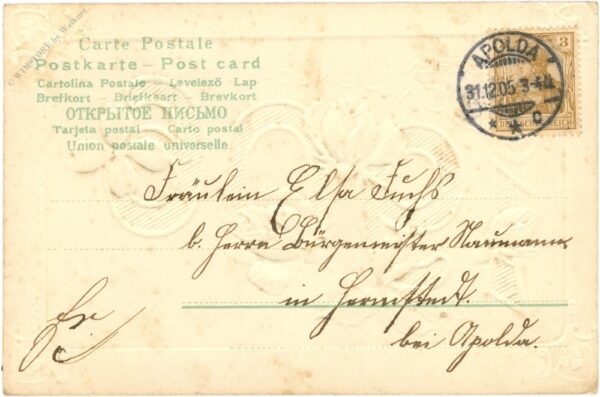 Carte Postale
Postkarte – Post card
Cartolina Postale – Levelező Lap
Brefkort – Briefkaart – Brevkort
ОТКРЫТОЕ ПИСЬМО
Tarjeta postal – Carto postal
Union postale universelle
APOLDA
31.12.05 3-4N
* * c
3
DEUTSCHES REICH
Fräulein Elsa Fuchs
b. Herrn Bürgermeister Naumann
in Hermstedt.
bei Apolda.